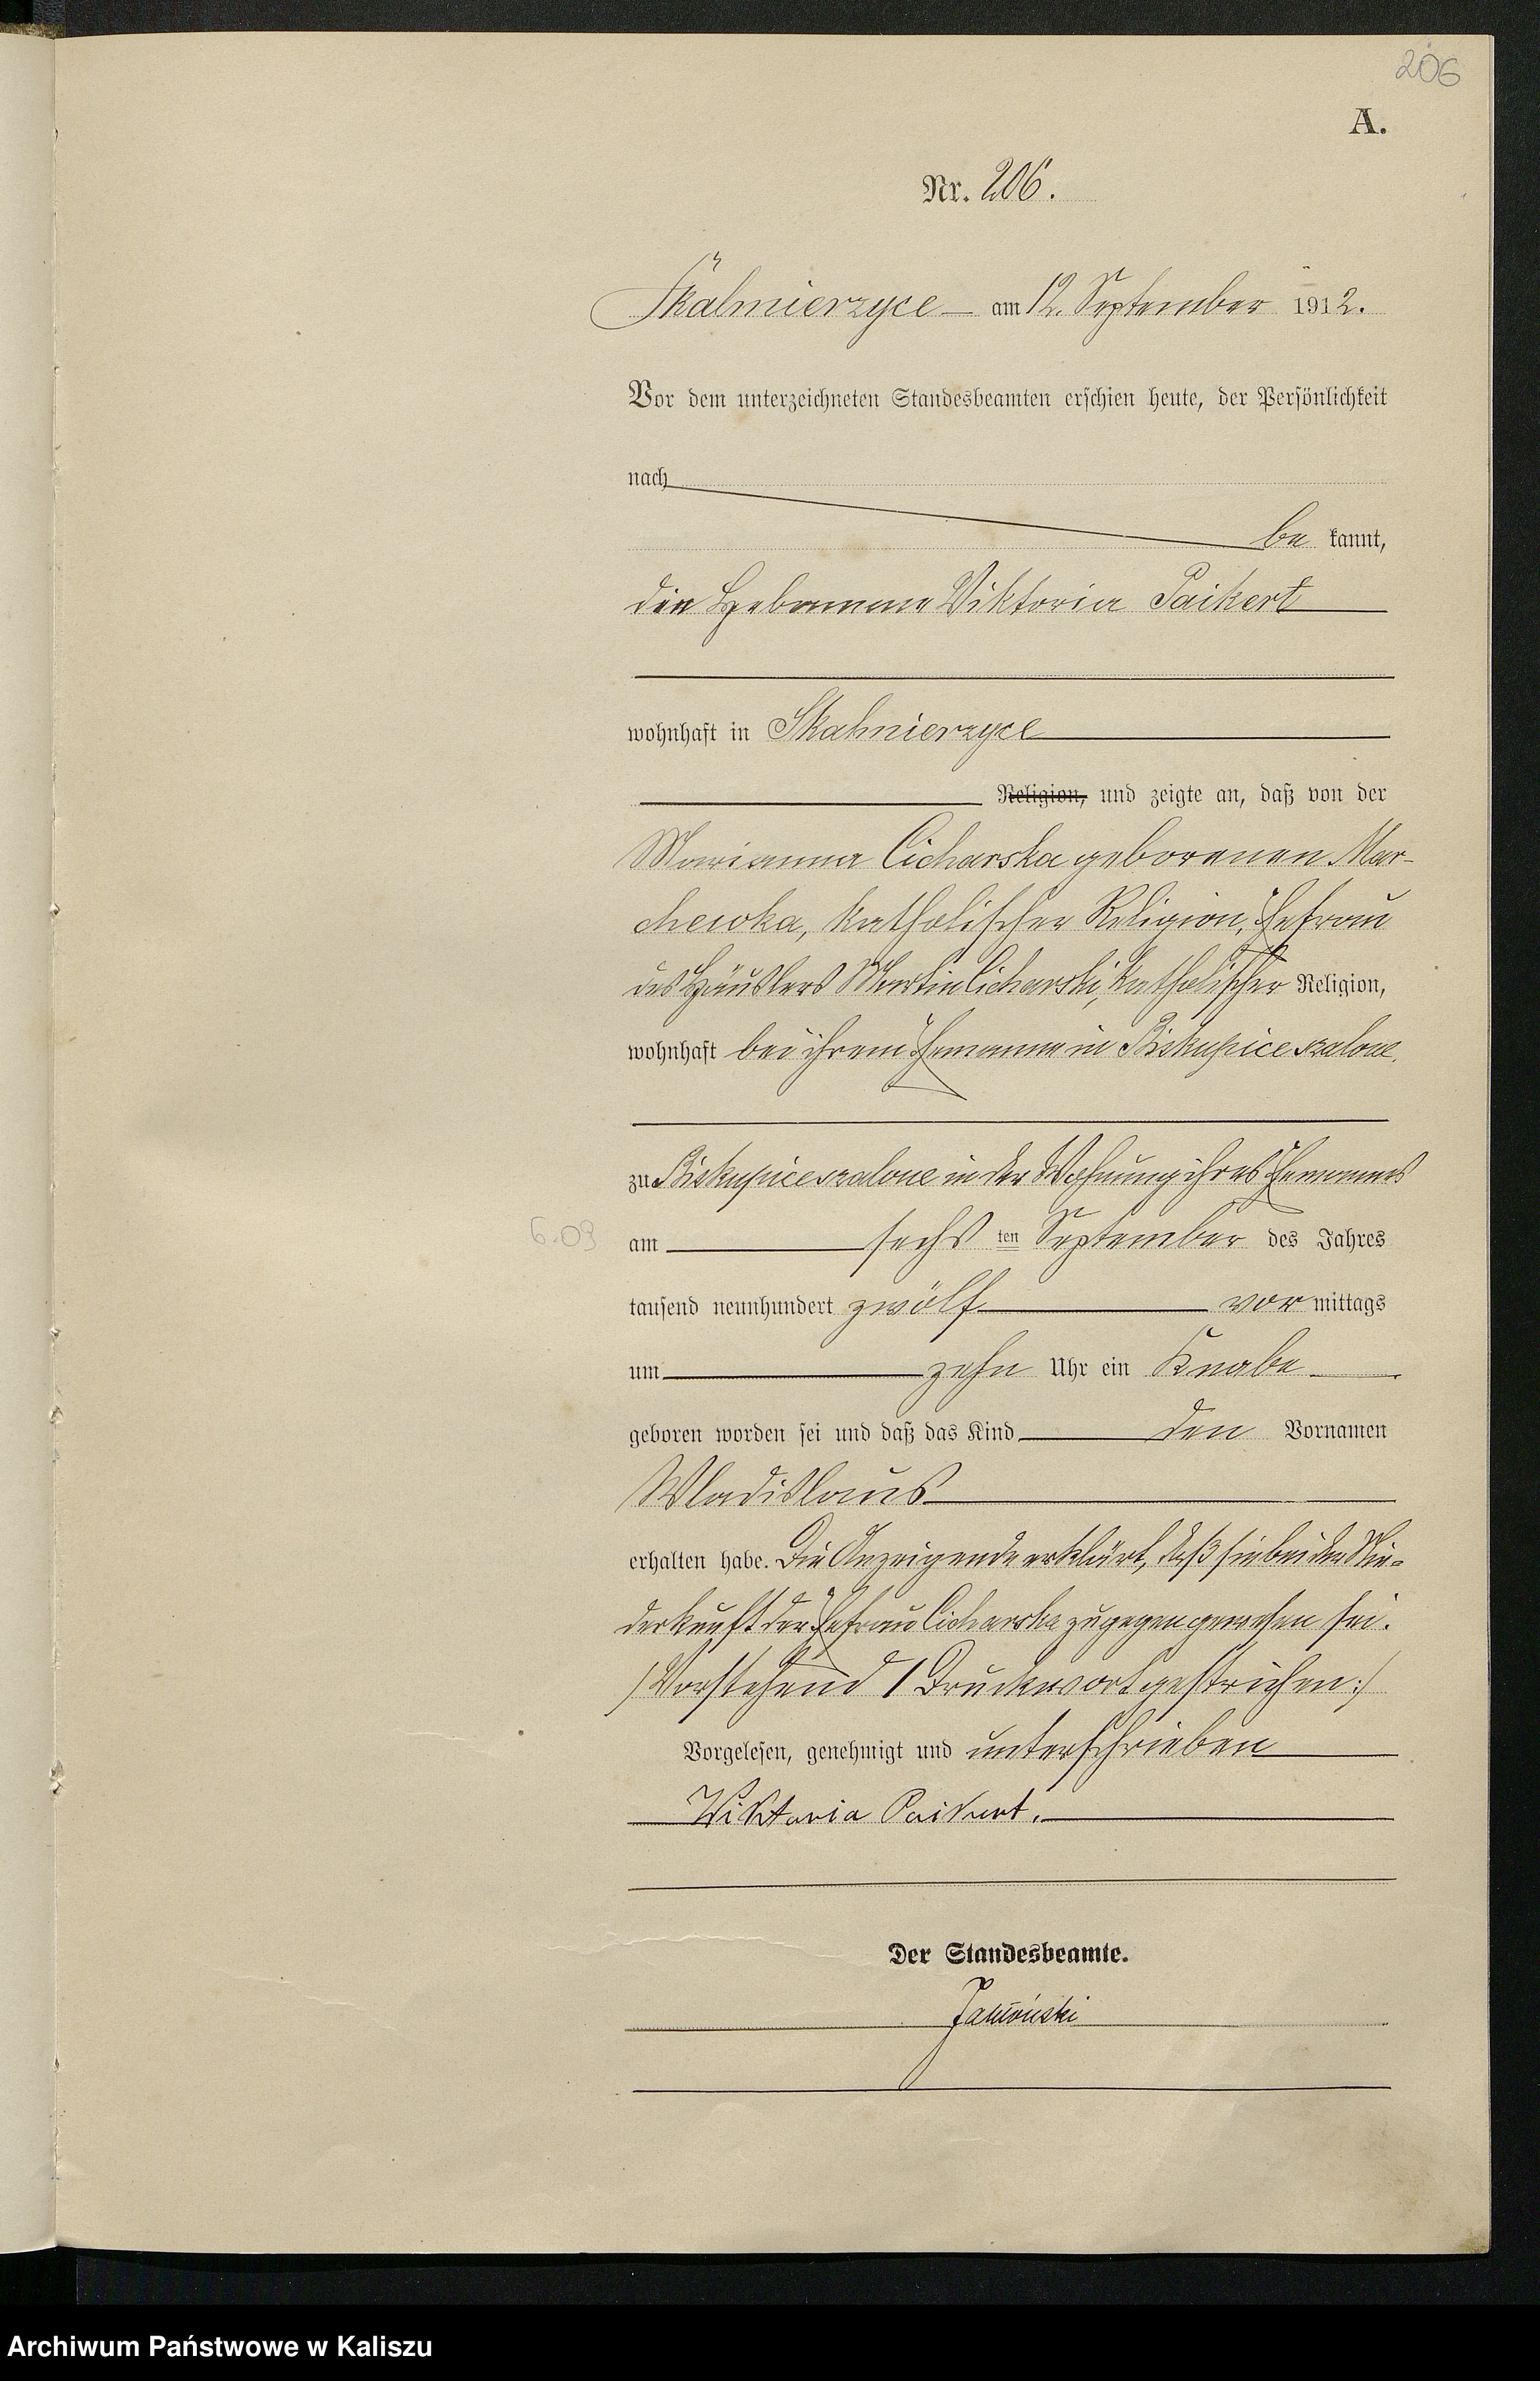 206
A.
Nr. 206.
Skalmierzyce am 12. September 1912.
Vor dem unterzeichneten Standesbeamten erschien heute, der Persönlichkeit
nach
be kannt,
die Hebamme Viktoria Paikert
wohnhaft in Skalmierzyce
Religion, und zeigte an, daß von der
Marianna Cicharska geborenen Mar-
chewka, katholischer Religion, Ehefrau
des Häuslers Martin Cicharski, katholischer Religion,
wohnhaft bei ihrem Ehemanne in Biskupice szalone,
zu Biskupice szalone in der Wohnung ihres Ehemannes
6.09 am sechs ten September des Jahres
tausend neunhundert zwölf vor mittags
um zehn Uhr ein Knabe
geboren worden sei und daß das Kind den Vornamen
Wladislaus
erhalten habe. Die Anzeigende erklärt, daß sie bei der Nie-
derkunft der Ehefrau Cicharska zugegen gewesen sei.
/Vorstehend 1 Druckwort gestrichen:/
Vorgelesen, genehmigt und unterschrieben
Wiktoria Paikert.
Der Standesbeamte.
Archiwum Państwowe w Kaliszu